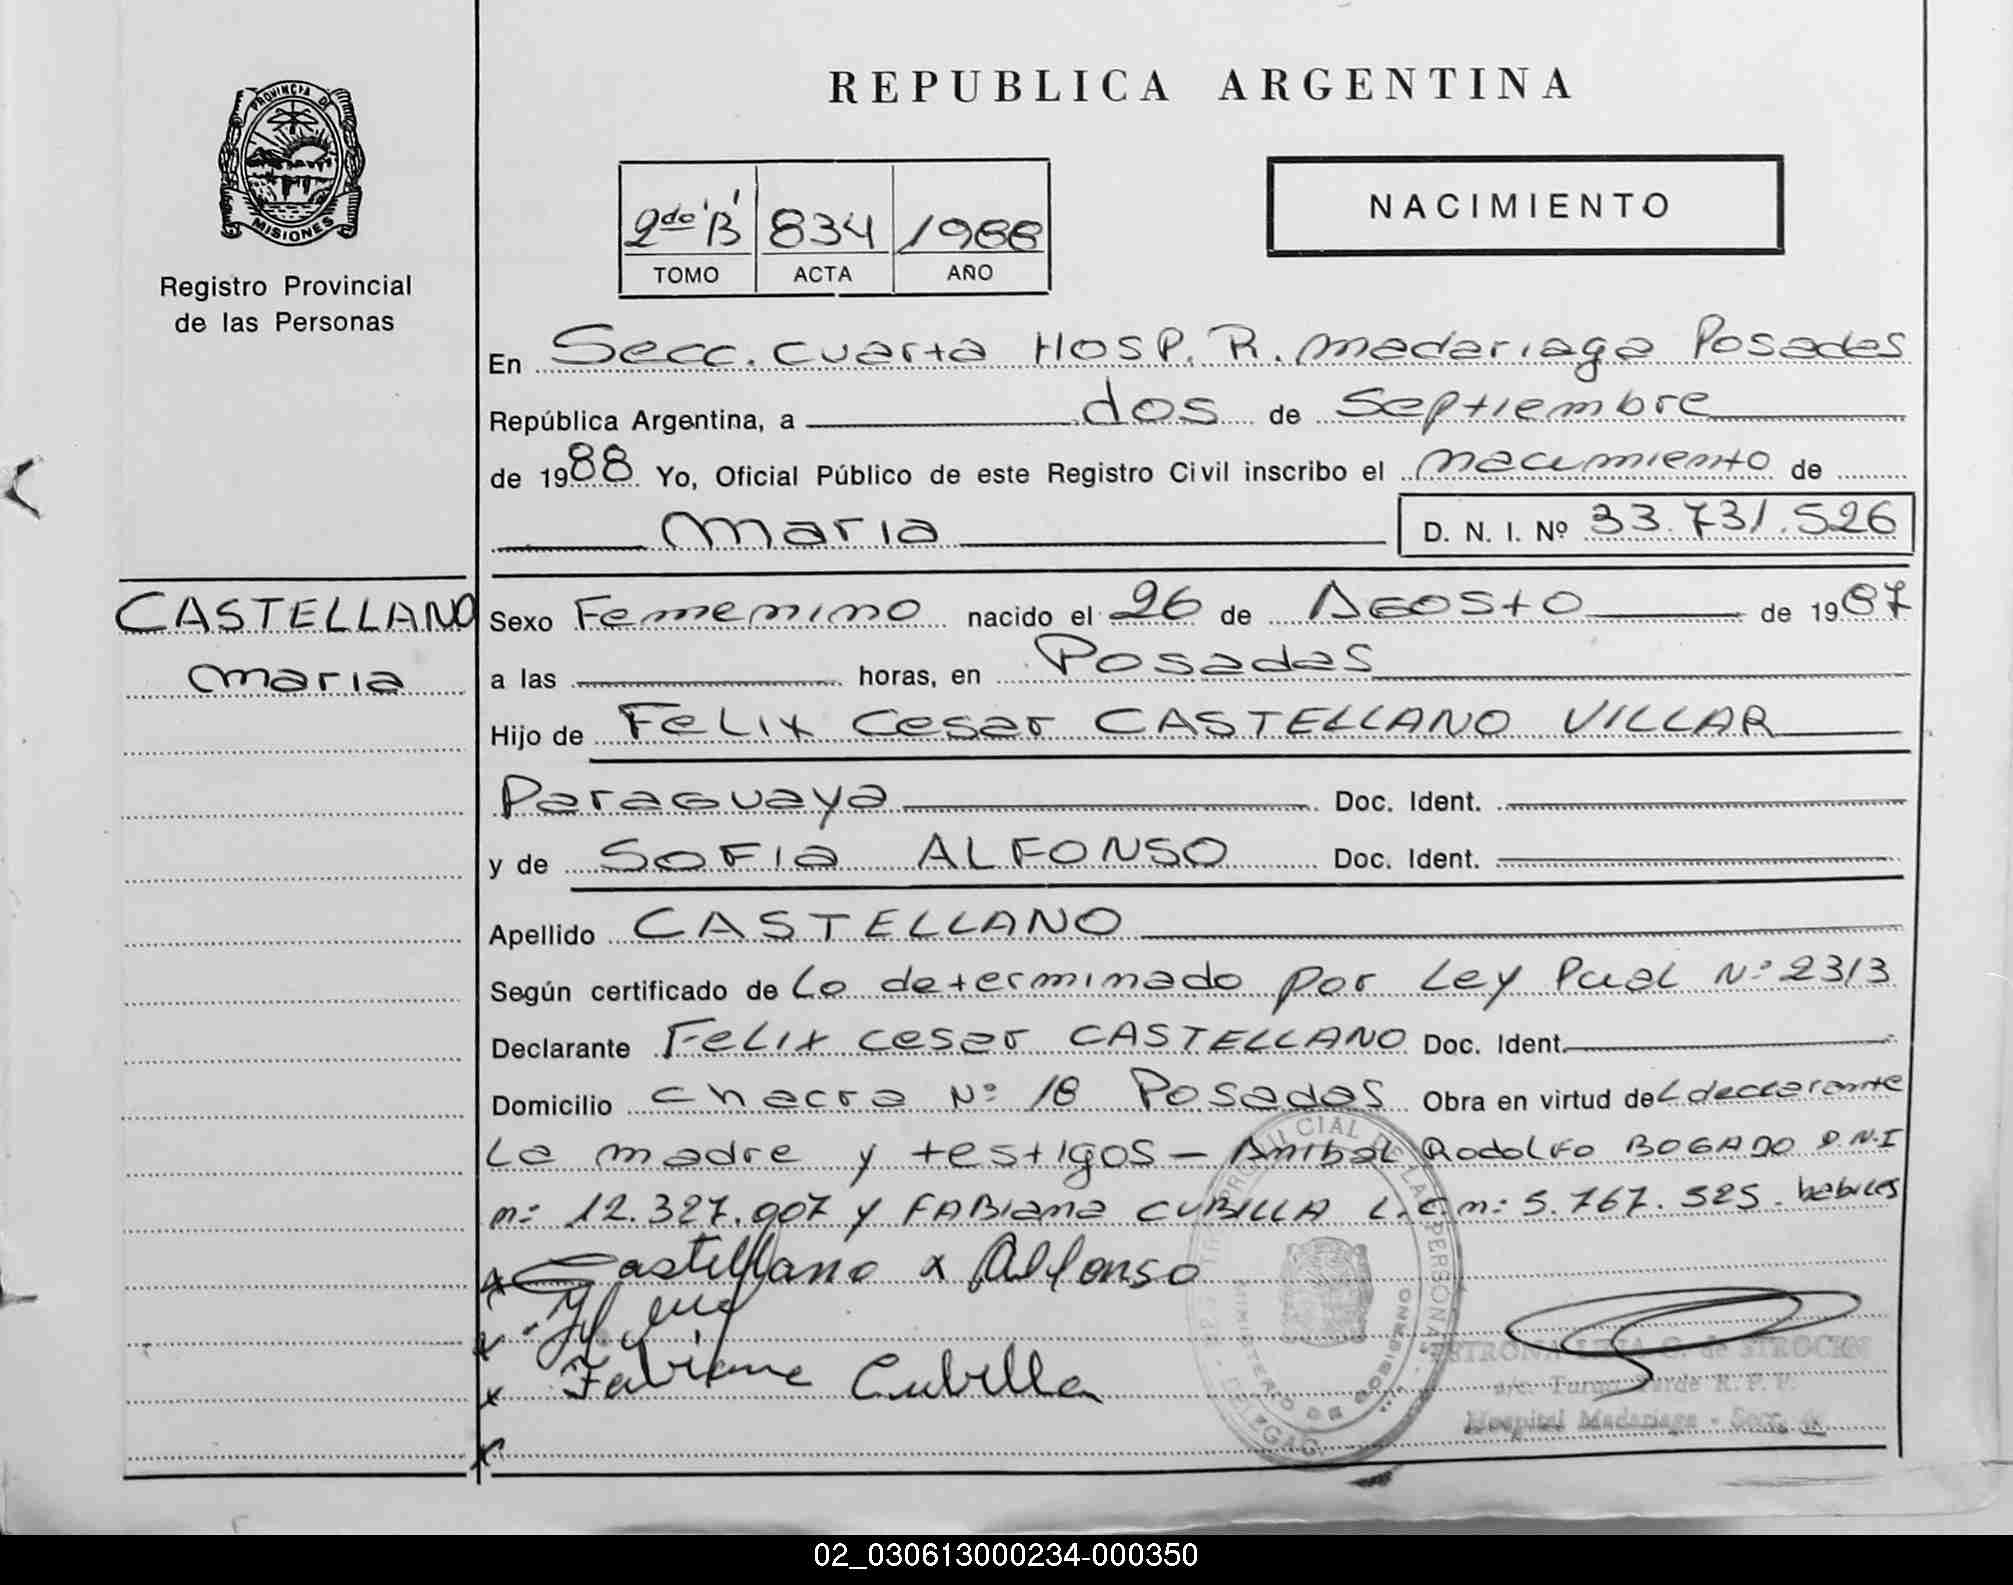 REPUBLICA ARGENTINA
PROVINCIA DE
MISIONES
Registro Provincial
de las Personas
2do 'B' 834 1988
TOMO ACTA AÑO
NACIMIENTO
En Secc. cuarta Hosp. R. madariaga Posadas
República Argentina, a dos de Septiembre
de 1988 Yo, Oficial Público de este Registro Civil inscribo el nacimiento de
maria D. N. I. Nº 33.731.526
CASTELLANO
maria
Sexo Femenino nacido el 26 de Agosto de 1987
a las horas, en Posadas
Hijo de Felix Cesar CASTELLANO VILLAR
Paraguaya Doc. Ident.
y de Sofia ALFONSO Doc. Ident.
Apellido CASTELLANO
Según certificado de Lo determinado por Ley Pcial Nº 2313
Declarante Felix cesar CASTELLANO Doc. Ident.
Domicilio chacra Nº 18 Posadas Obra en virtud del declarante
La madre y testigos - Anibal Rodolfo BOGADO D.N.I
nº 12.327.907 y FABIana CUBILLA L.C. nº 5.767.525. habiles
x Castellano x Alfonso
x
x Fabiana Cubilla
x
MINISTERIO DE GOBIERNO
Hospital Madariaga - Secc. 4a
02_030613000234-000350